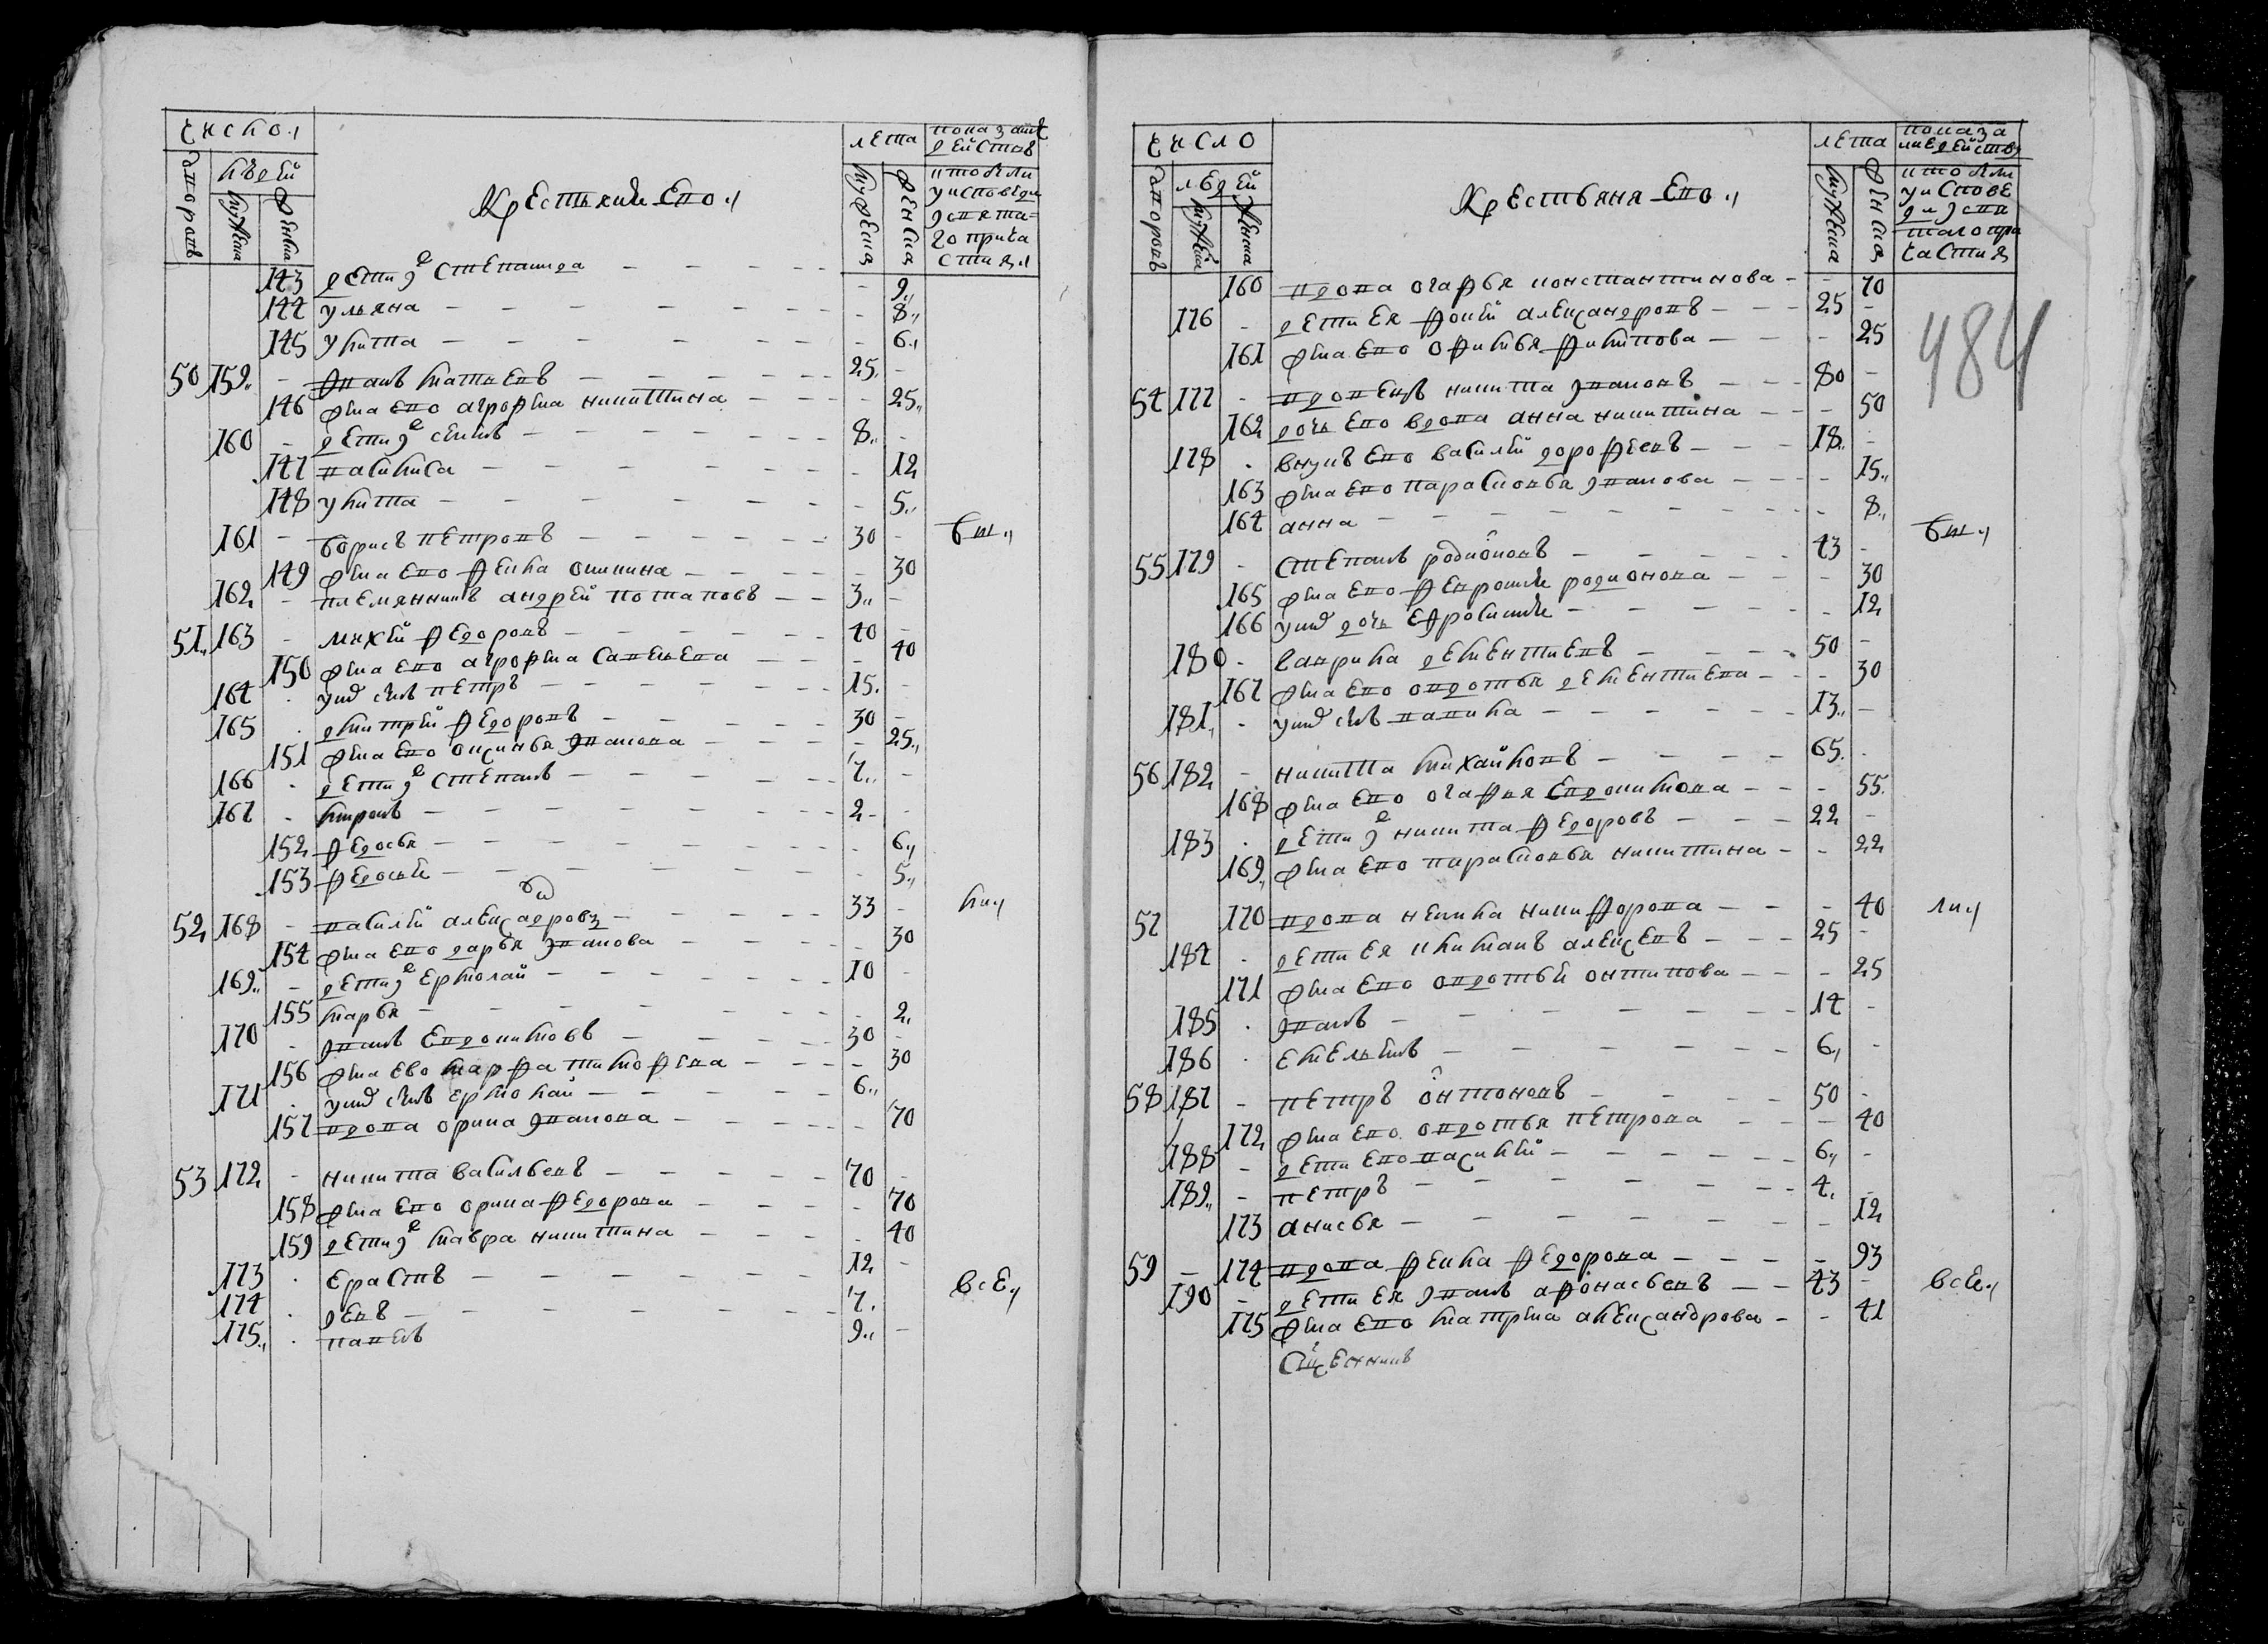 число
дворовъ
людей
мужеска
женска
Крестьяне ево
лета
мужеска
женска
показание действ
кто были
у исповеди
и святаго причастия
143 дети их Степанида - 9
144 ульяна - 8
145 улита - 6
50 159 иванъ матвеевъ 25 -
146 жена ево аграфена никитина - 25
160 - дети их семенъ 8 -
147 василиса - 12
148 улита - 5
161 - борисъ петровъ 30 - были
149 жена ево фекла осипина - 30
162 - племянникъ андрей потаповъ 3 -
51 163 - михей федоровъ 40 -
150 жена ево аграфена савельева - 40
164 у них сынъ петръ 15 -
165 дмитрей федоровъ 30 -
151 жена ево оксинья иванова - 25
166 дети их степанъ 7 -
167 миронъ 2 -
152 федосья - 6
153 федосья - 5
52 168 - василей александровъ 33 -
154 жена ево дарья иванова - 30
169 - дети их ермолай 10 -
155 марья - 2
170 иванъ евдокимовъ 30 -
156 жена ево марфа тимофеева - 30
171 у них сынъ ермолай 6
157 вдова орина иванова - 70
53 172 - никита васильевъ 70 -
158 жена ево орина федорова - 70
159 дети их мавра никитина - 40
173 ерастъ 12 -
174 левъ 7
175 павелъ 9 -
все
484
число
дворовъ
людей
мужеска
женска
Крестьяня ево
лета
мужеска
женска
показание действ
кто были
у исповеди и святаго причастия
160 вдова огафья константинова - 70
176 - дети ея фокей александровъ 25 -
161 жена ево офимья филипова - 25
54 177 - вдовецъ никита ивановъ 80 -
162 дочь ево вдова анна никитина - 50
178 внукъ ево василей дорофеевъ 18 -
163 жена ево парасковья иванова - 15
164 анна - 8
55 179 - степанъ родионовъ 43 - были
165 жена ево февронья родионова - 30
166 у них дочь ефросинья - 12
180 - гаврила дементиевъ 50 -
167 жена ево овдотья дементиева - 30
181 - у них сынъ вавила 13 -
56 182 - никита михайловъ 65
168 жена ево огафья евдокимова - 55
183 дети их никита федоровъ 22 -
169 жена ево парасковья никитина - 22
57 170 вдова некила никифорова - 40
184 дети ея климанъ алексеевъ 25 -
171 жена ево овдотья онтипова - 25
185 иванъ 14 -
186 емельянъ 6 -
58 187 - петръ онтоновъ 50 -
172 жена ево овдотья петрова - 40
188 - дети ево василей 6 -
189 - петръ 4
173 анисья - 12
59 - 174 вдова фекла федорова - 93
190 - дети ея иванъ афонасьевъ 43 - все
175 жена ево матрена александрова - 41
Священникъ